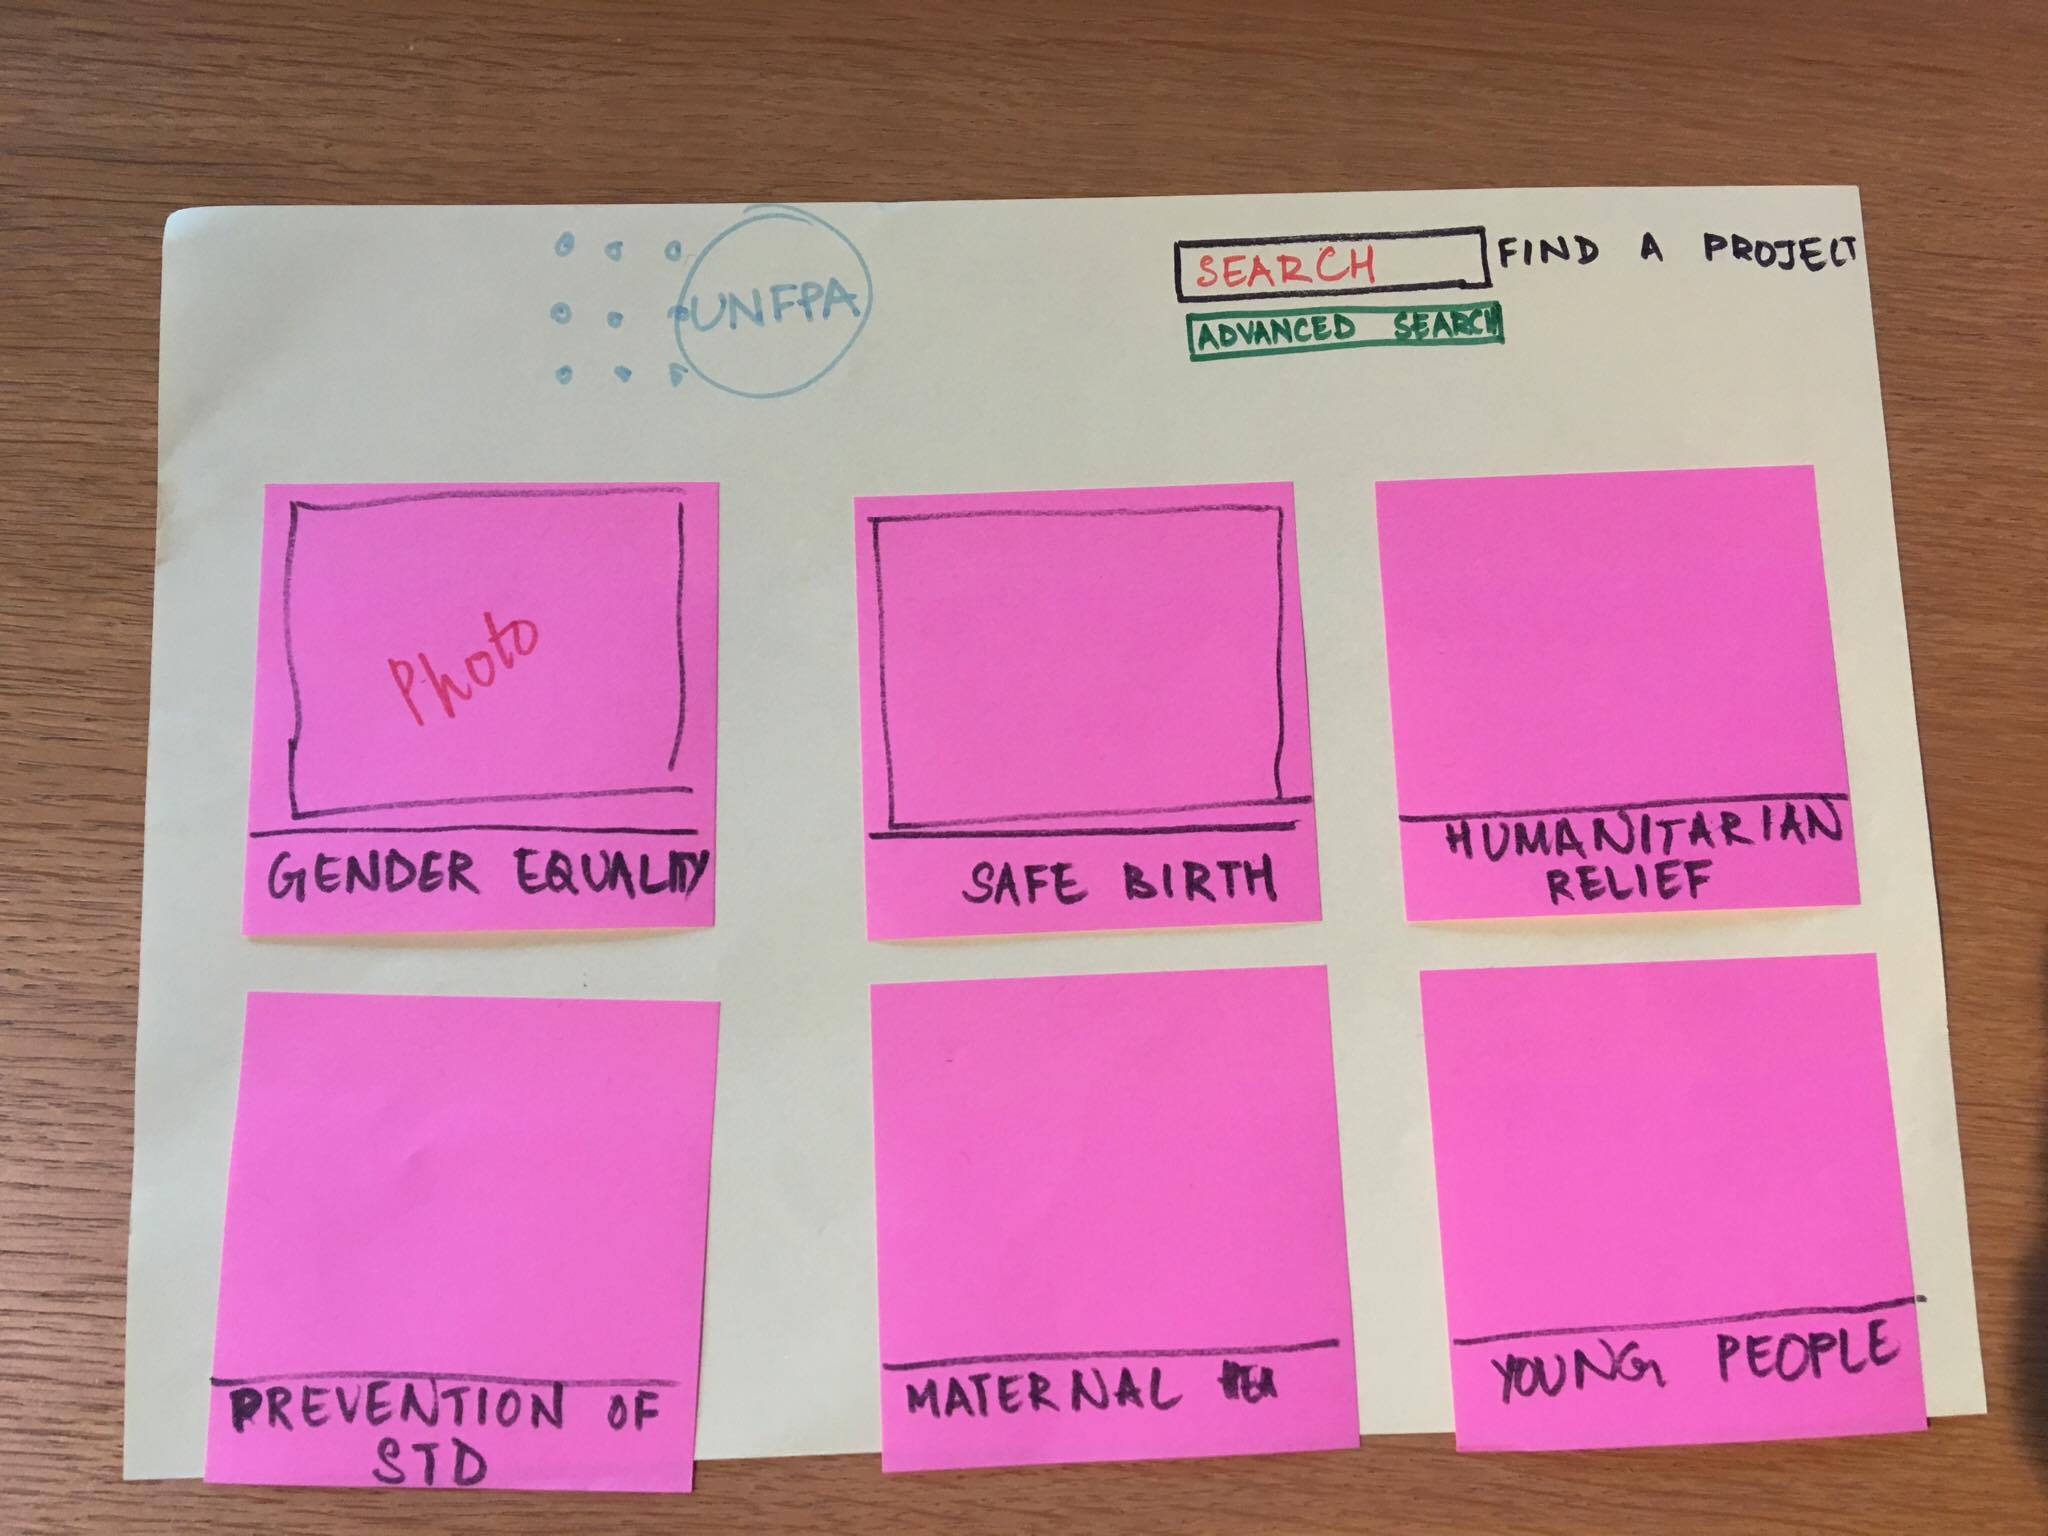 UNFPA
SEARCH FIND A PROJECT
ADVANCED SEARCH
Photo
GENDER EQUALITY
SAFE BIRTH
HUMANITARIAN
RELIEF
PREVENTION OF
STD
MATERNAL HEA
YOUNG PEOPLE